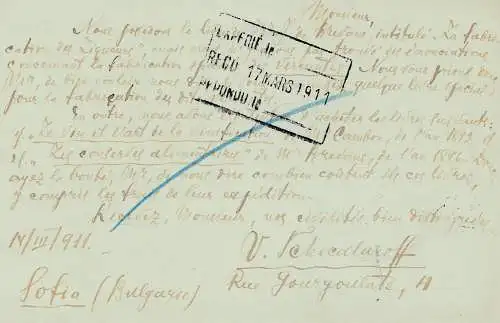 Monsieur,
Nous possédons le livre de Mr de Brevans, intitulé "La fabri-
cation des liqueurs", mais nous n'avons pas trouvé des
concernant la fabrication Nous vous prions
Mr, de bien vouloir nous quelque livre spécial
pour la fabrication des
En outre, nous acheter les livres suivants:
1/. "Le vin et l'art de la vinification" Cambon, de l'an 1892 et
2/. "Les conserves alimentaires" de Mr Brevans, de l'an 1896.
ayez la bonté, Mr, de nous dire combien coûtent ces livres,
y compris les frais de leur expédition.
Recevez, Monsieur, nos civilités bien distinguées.
14/III/911.
V. Tchicalaroff
Sofia (Bulgarie)
Rue Gourgouliate, 11
EXPEDIÉ le
REÇU 17 MARS 1911
REPONDU le